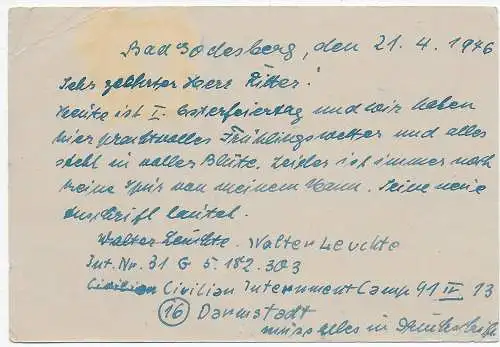 Bad Godesberg, den 21. 4. 1946
Sehr geehrter Herr Ritter!
Heute ist I. Osterfeiertag und wir haben
hier prachtvolles Frühlingswetter und alles
steht in voller Blüte. Leider ist immer noch
keine Spur von meinem Mann. Seine neue
Anschrift lautet.
Walter Leuchte. Walter Leuchte
Int. Nr. 31 G 5. 182. 303
Civilian Civilian Internment Camp 91 IV 13
(16) Darmstadt
muss alles in Druckschrift